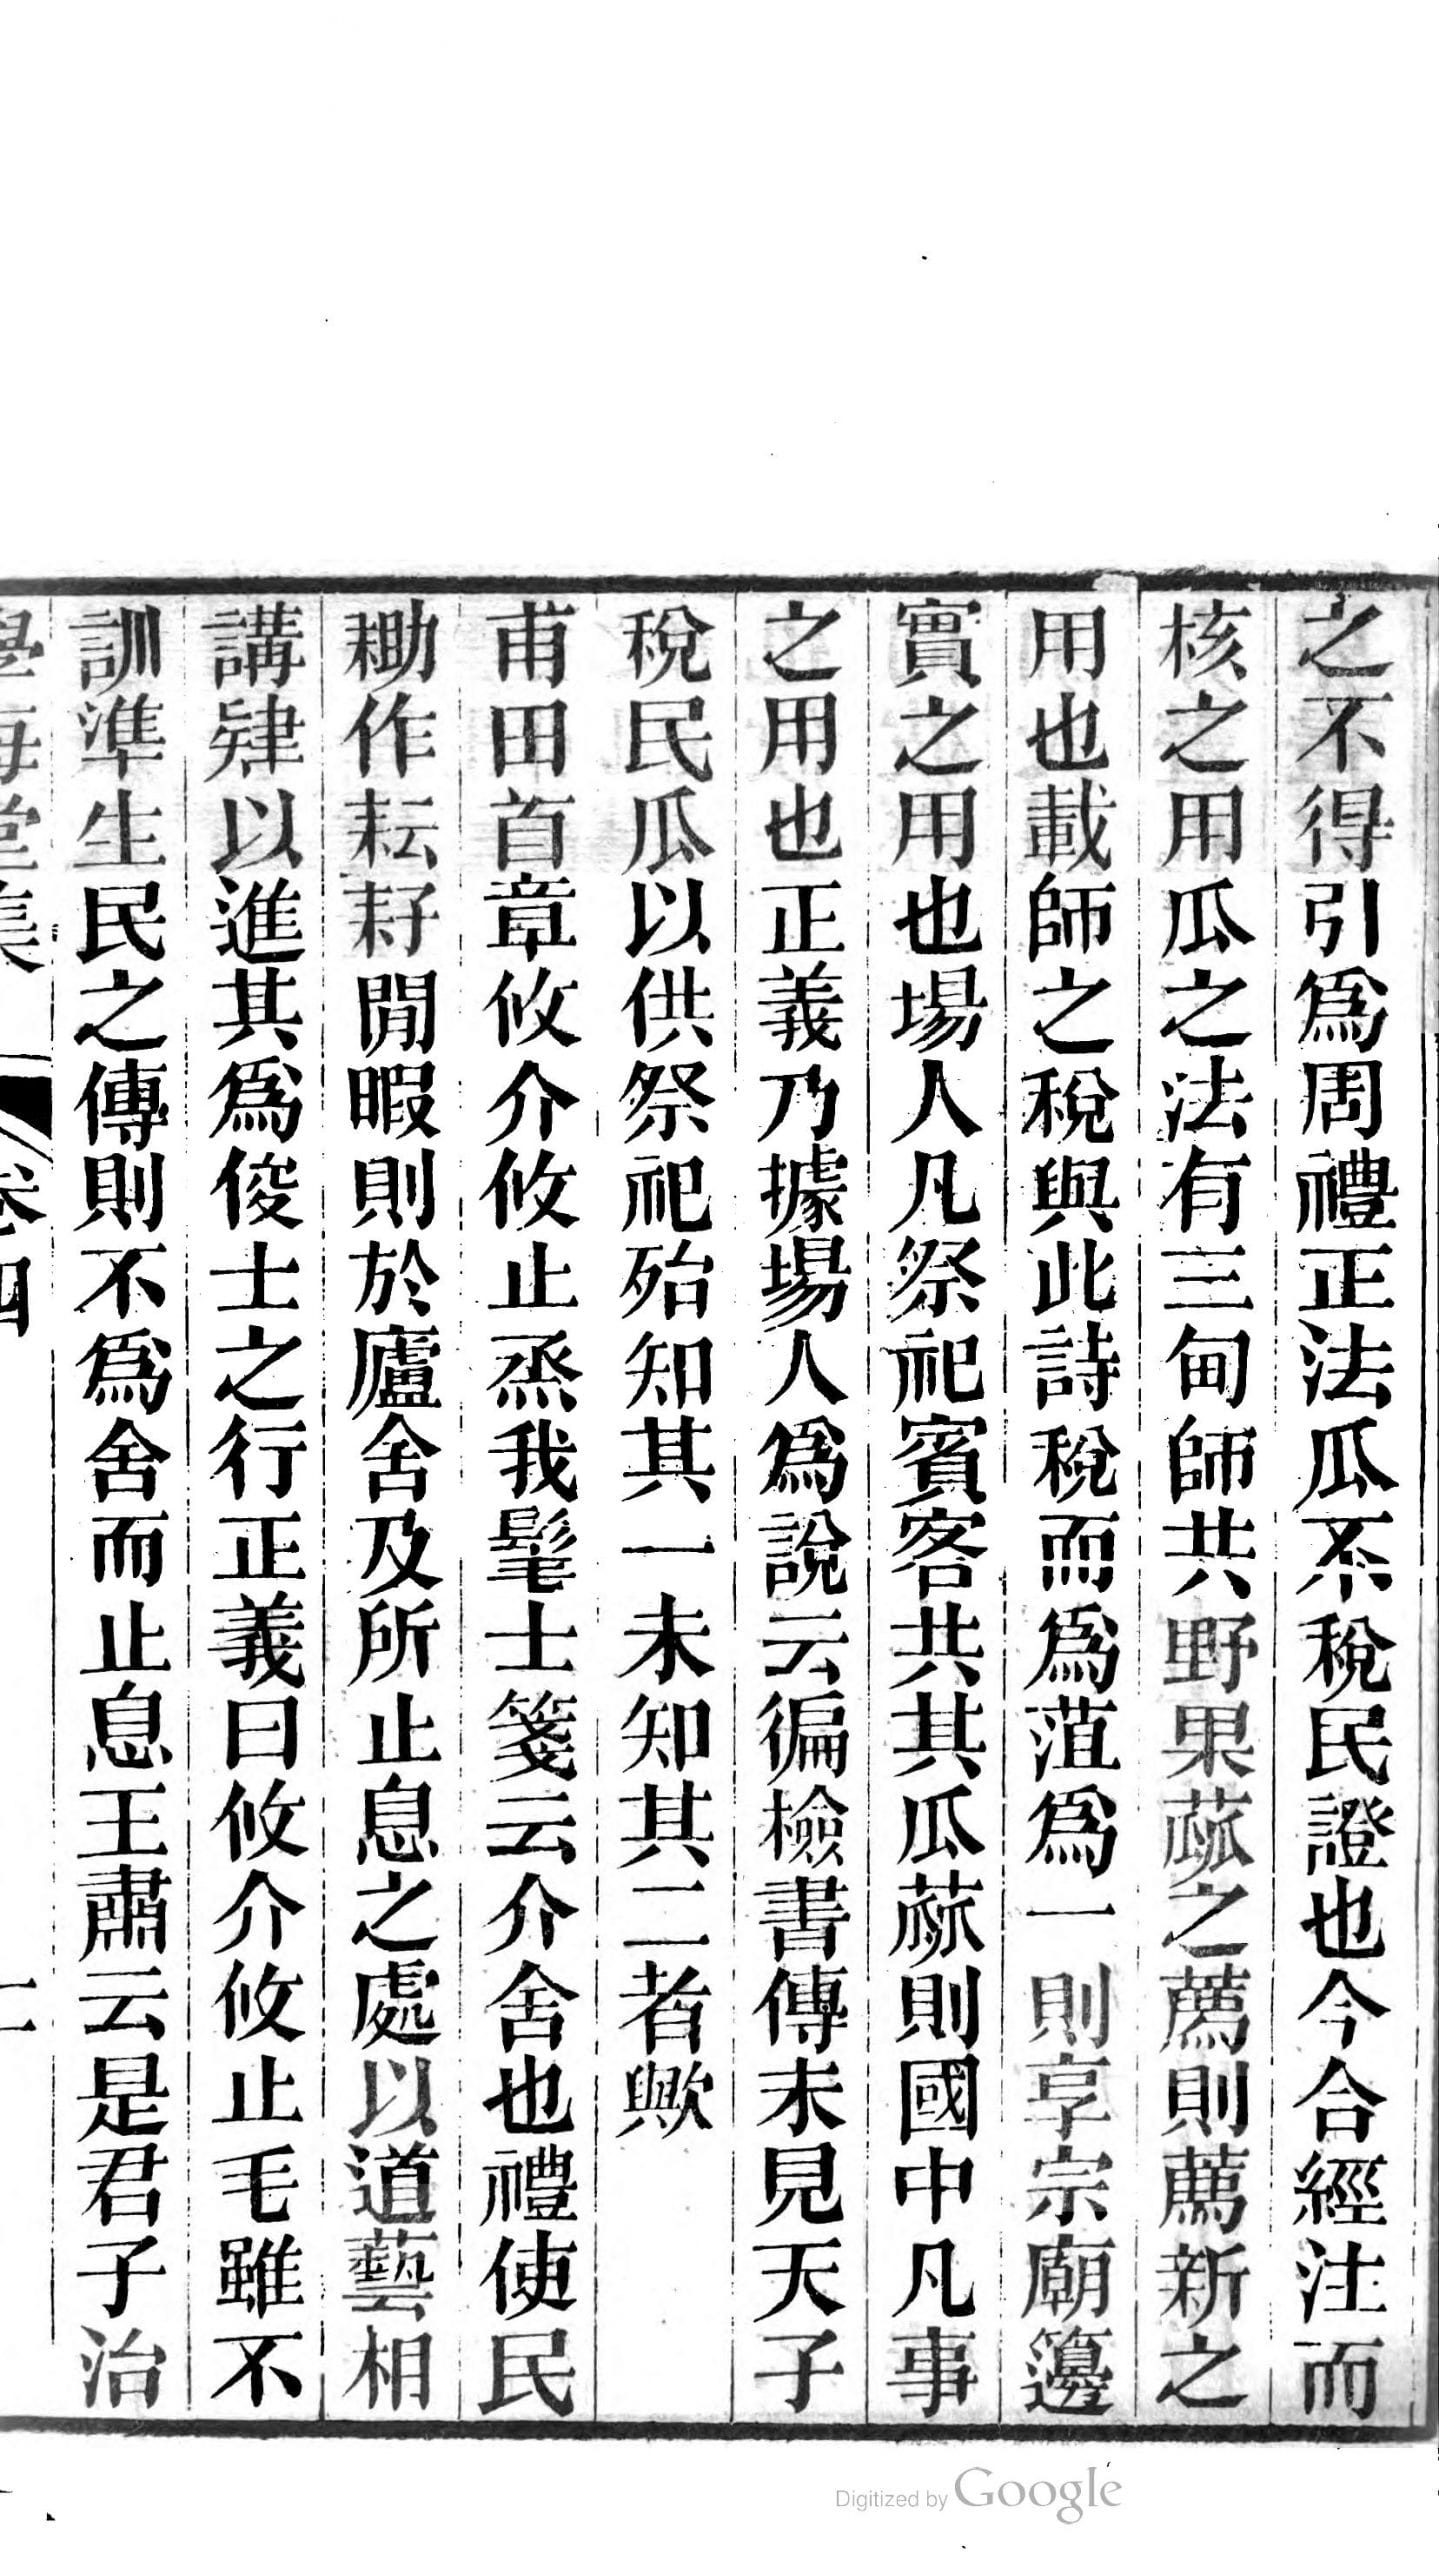 之不得引爲周禮正法瓜不稅民證也今合經注而
核之用瓜之法有三甸師共野果蓏之薦則薦新之
用也載師之稅與此詩稅而爲菹爲一則享宗廟籩
實之用也場人凡祭祀賓客共其瓜蓏則國中凡事
之用也正義乃據場人爲說云徧檢書傳未見天子
稅民瓜以供祭祀殆知其一未知其二者歟
甫田首章攸介攸止烝我髦士箋云介舍也禮使民
耡作耘耔閒暇則於廬舍及所止息之處以道藝相
講肄以進其爲俊士之行正義曰攸介攸止毛雖不
訓準生民之傳則不爲舍而止息王肅云是君子治
學海堂集
卷四
Digitized by Google